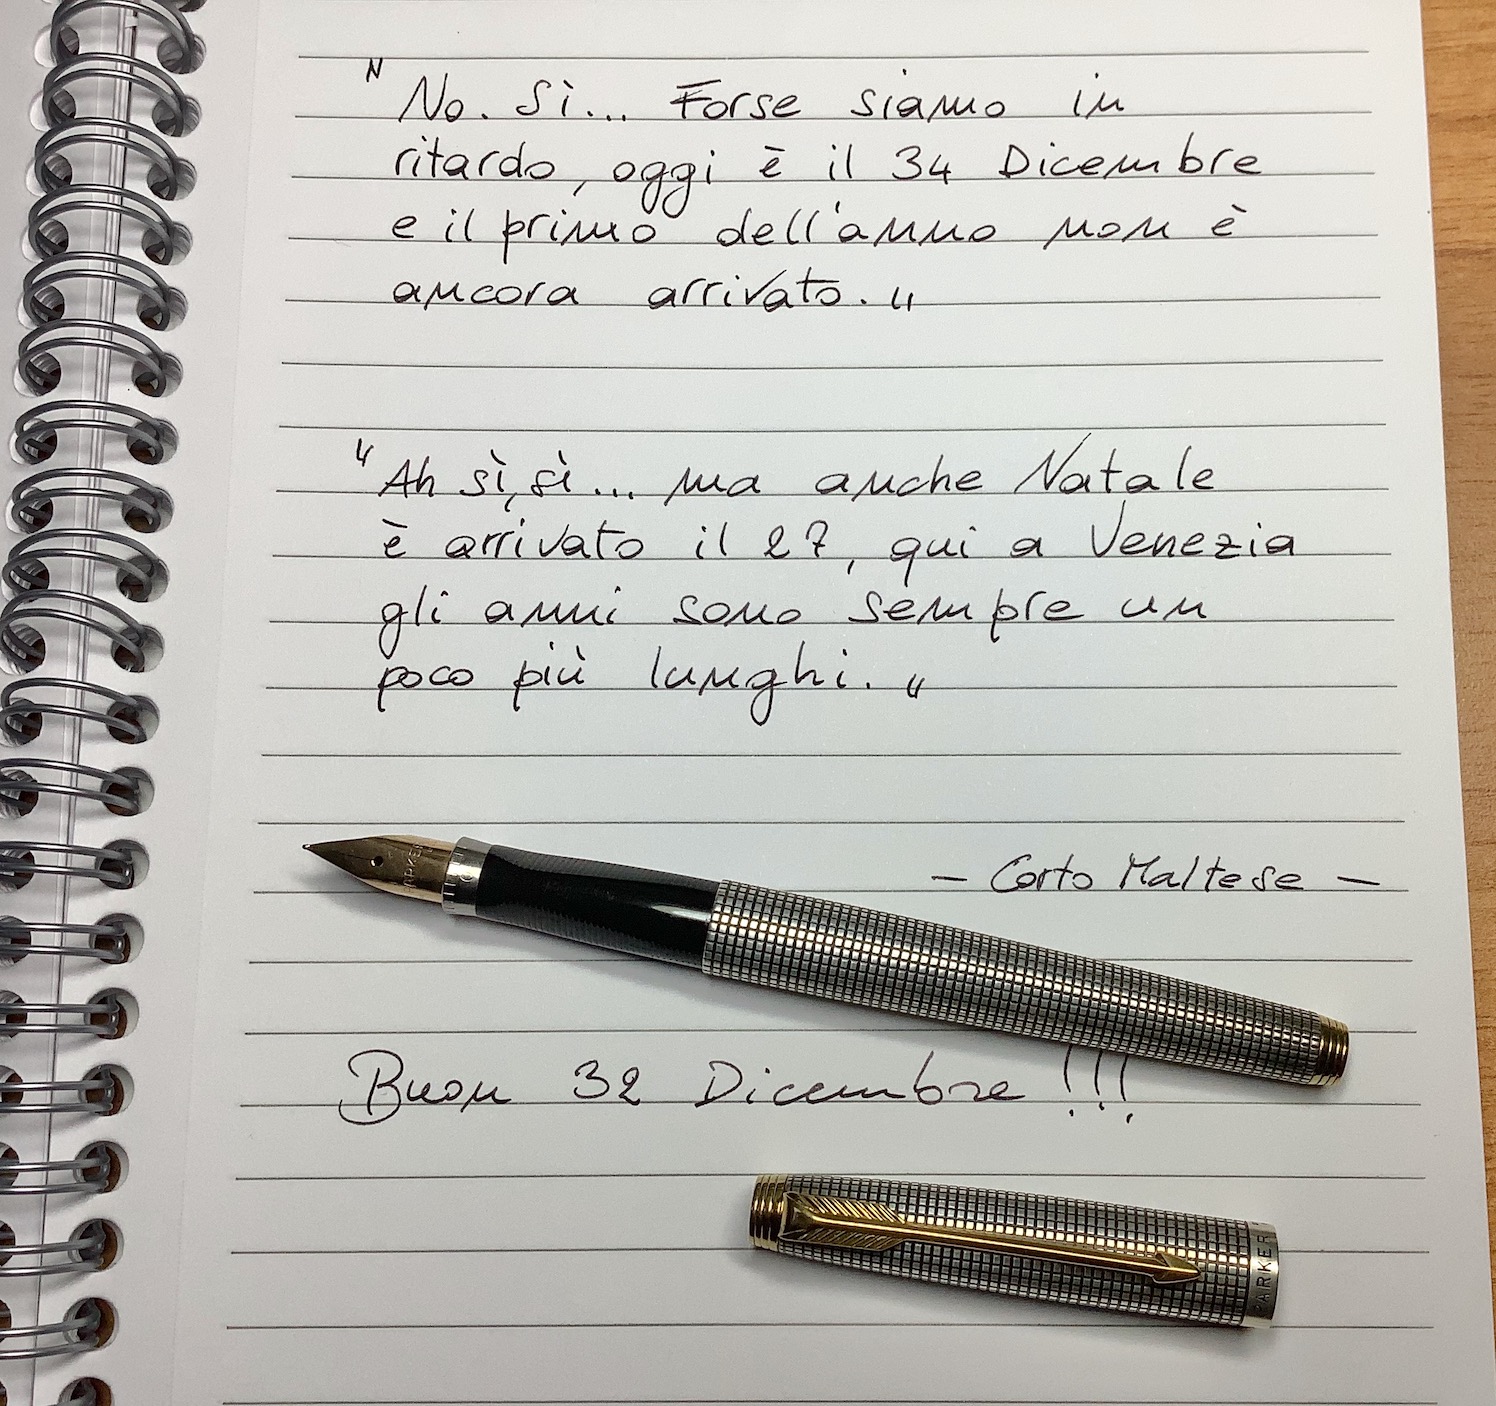 "No. Sì... Forse siamo in
ritardo, oggi è il 34 Dicembre
e il primo dell'anno non è
ancora arrivato."
"Ah sì, sì... ma anche Natale
è arrivato il 27, qui a Venezia
gli anni sono sempre un
poco più lunghi."
PARKER
- Corto Maltese -
Buon 32 Dicembre!!!
PARKER